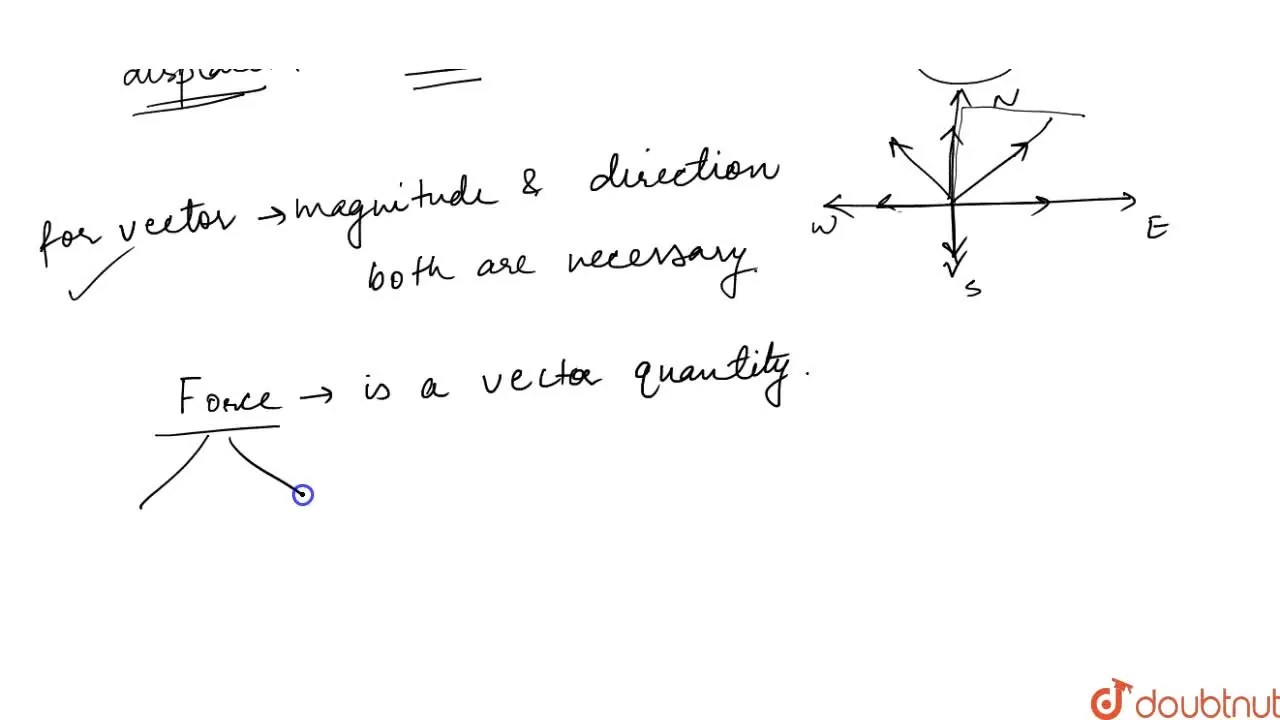 N
for vector → magnitude & direction
W
E
both are necessary
S
Force → is a vector quantity.
doubtnut